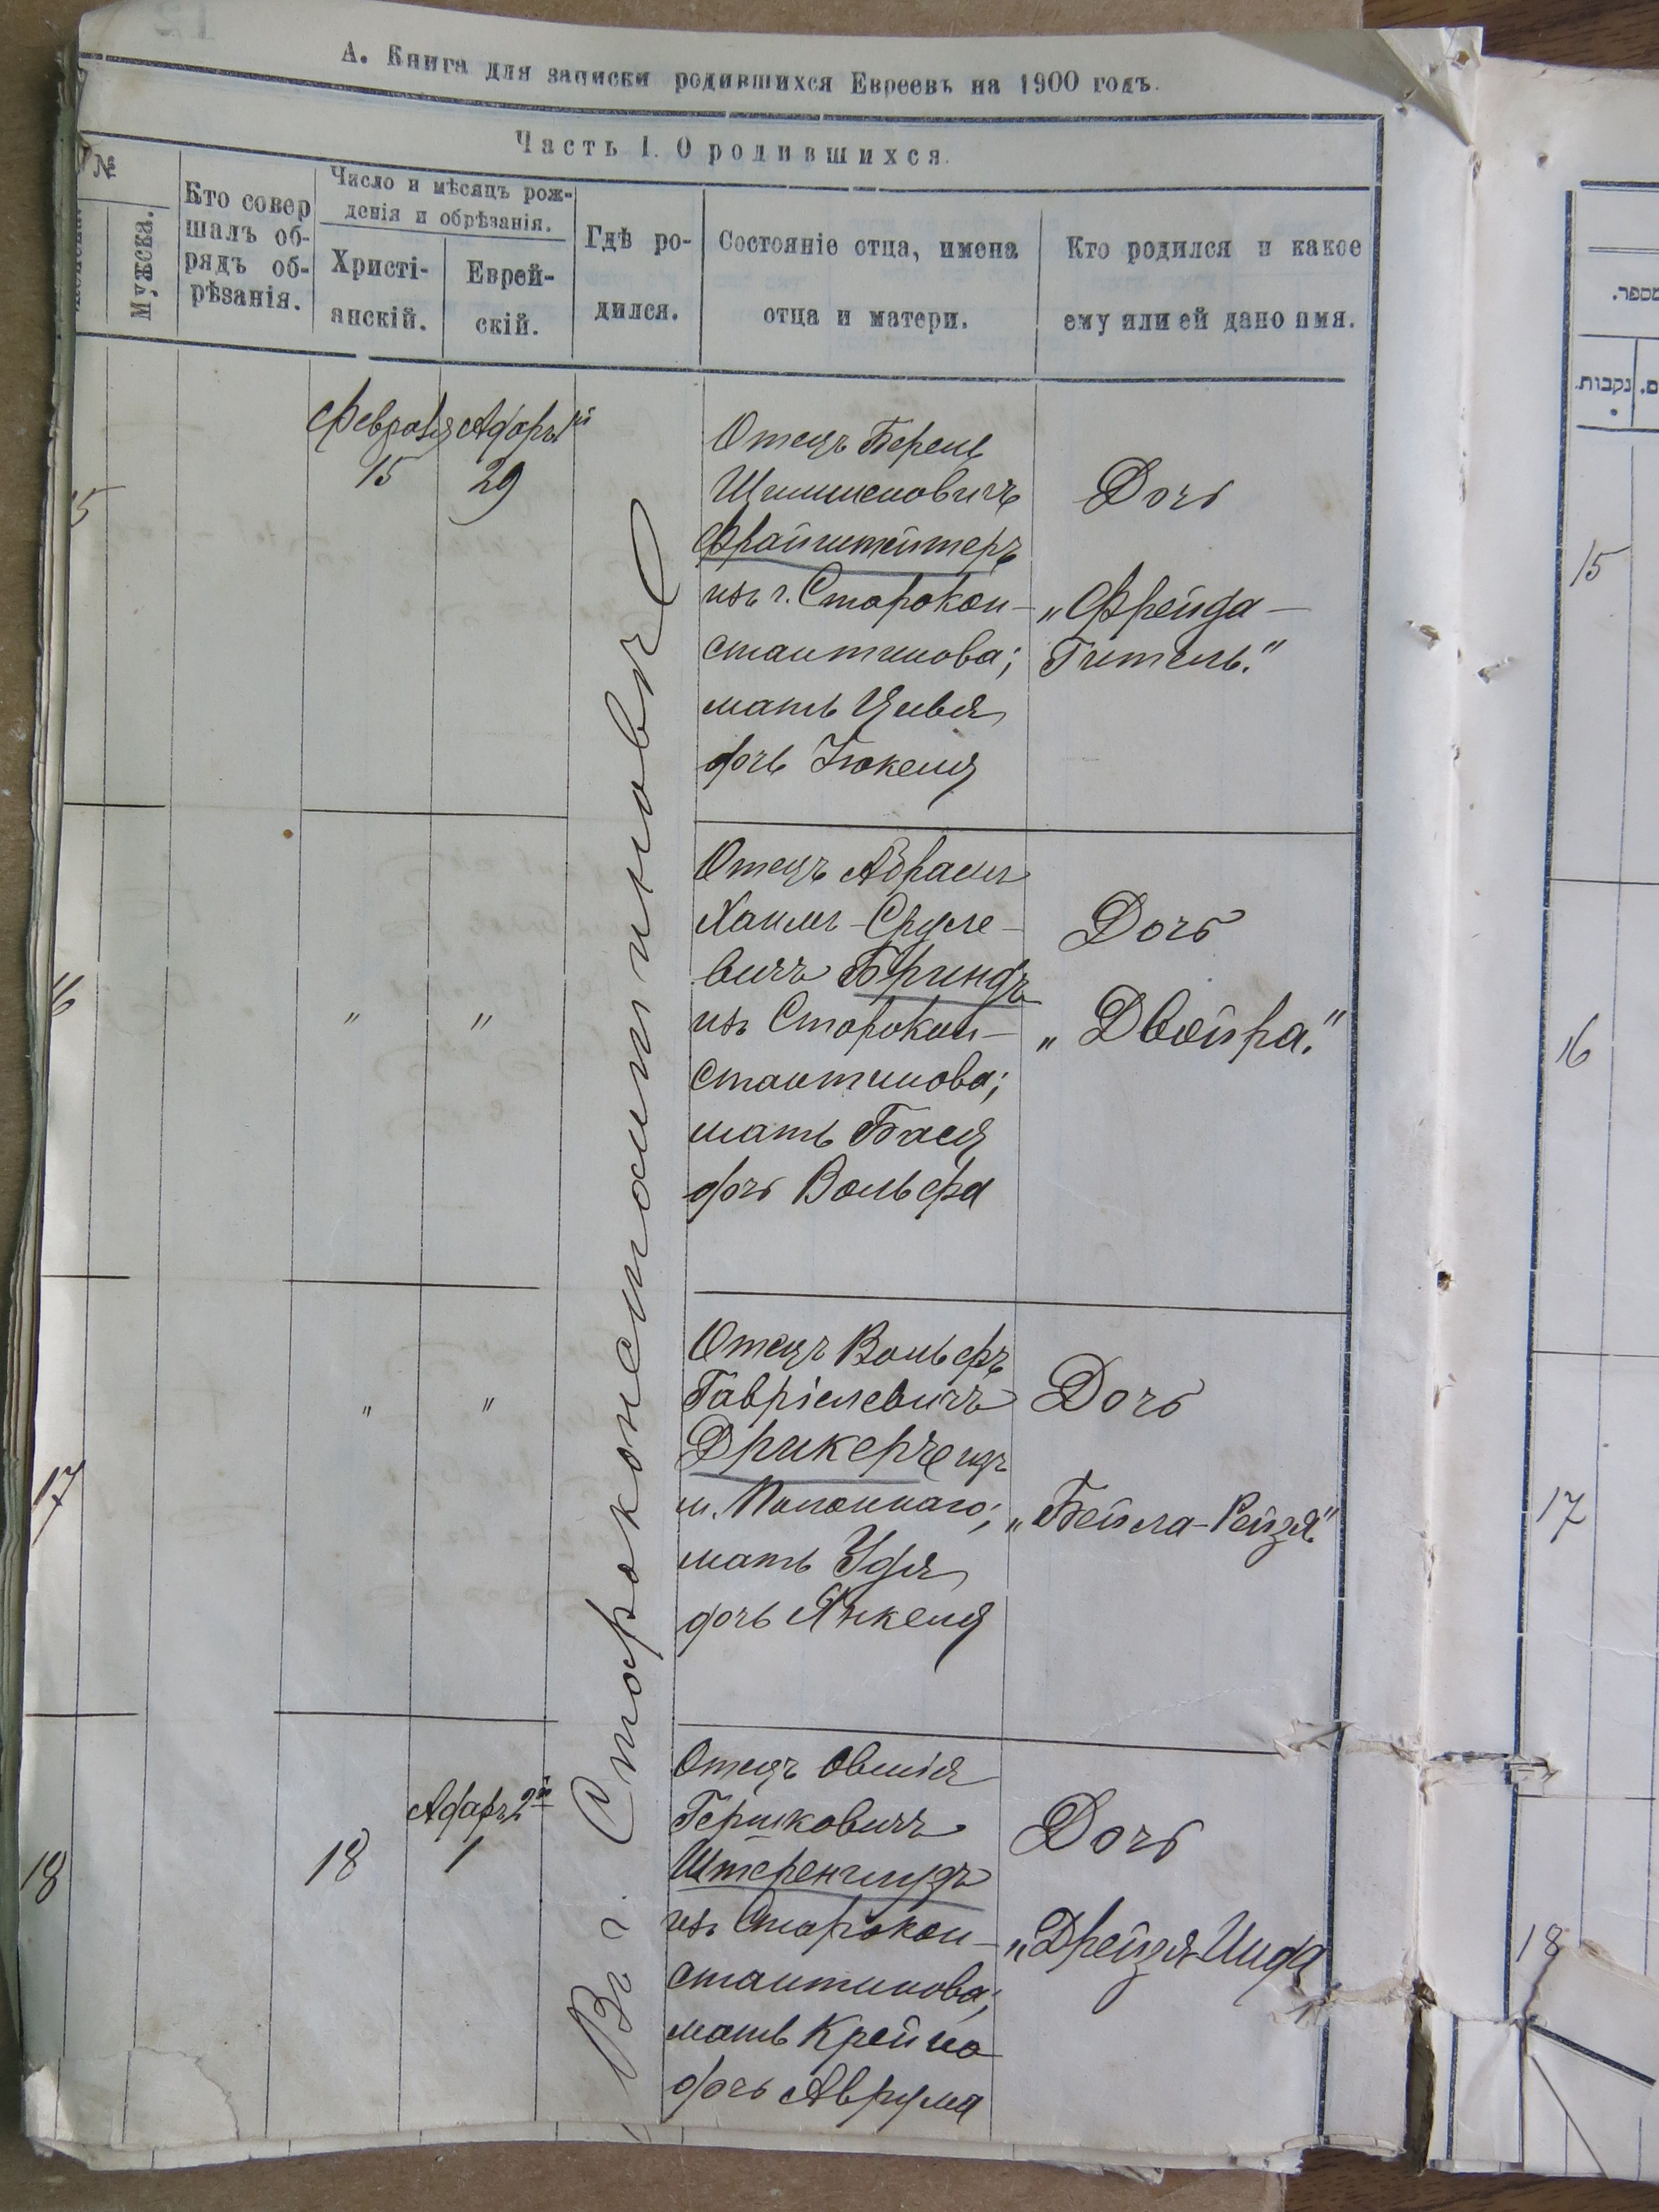 А. Книга для записки родившихся Евреевъ на 1900 годъ.
Часть I. О родившихся.
№
Мужска.
Кто совер
шалъ об-
рядъ об-
рѣзанія.
Число и мѣсяцъ рож-
денія и обрѣзанія.
Христі-
анскій.
Еврей-
скій.
Гдѣ ро-
дился.
Состояніе отца, имена
отца и матери.
Кто родился и какое
ему или ей дано имя.
Въ г. Староконстантиновѣ
15
Февраля
15
Адаръ 1й
29
Отецъ Берец
Шимшеновичъ
Фрайштейтеръ
изъ г. Старокон-
стантинова;
мать Цивя
дочь Іюкеля
Дочь
„Фрейда-
Гитель."
16
"
"
Отецъ Абрамъ
Хаимъ-Сруле-
вичъ Бриндъ
изъ Старокон-
стантинова;
мать Бася
дочь Вольфа
Дочь
„Двойра."
17
"
"
Отецъ Вольфъ
Гавріелевичъ
Дрикеръ изъ
м. Полоннаго;
мать Удя
дочь Янкеля
Дочь
„Бейла-Рейзя"
18
18
Адаръ 2й
1
Отецъ Овшія
Гершковичъ
Штеренгидъ
изъ Старокон-
стантинова;
мать Крейна
дочь Аврума
Дочь
„Дрейзя-Инда
מספר.
נקבות.
15
16
17
18